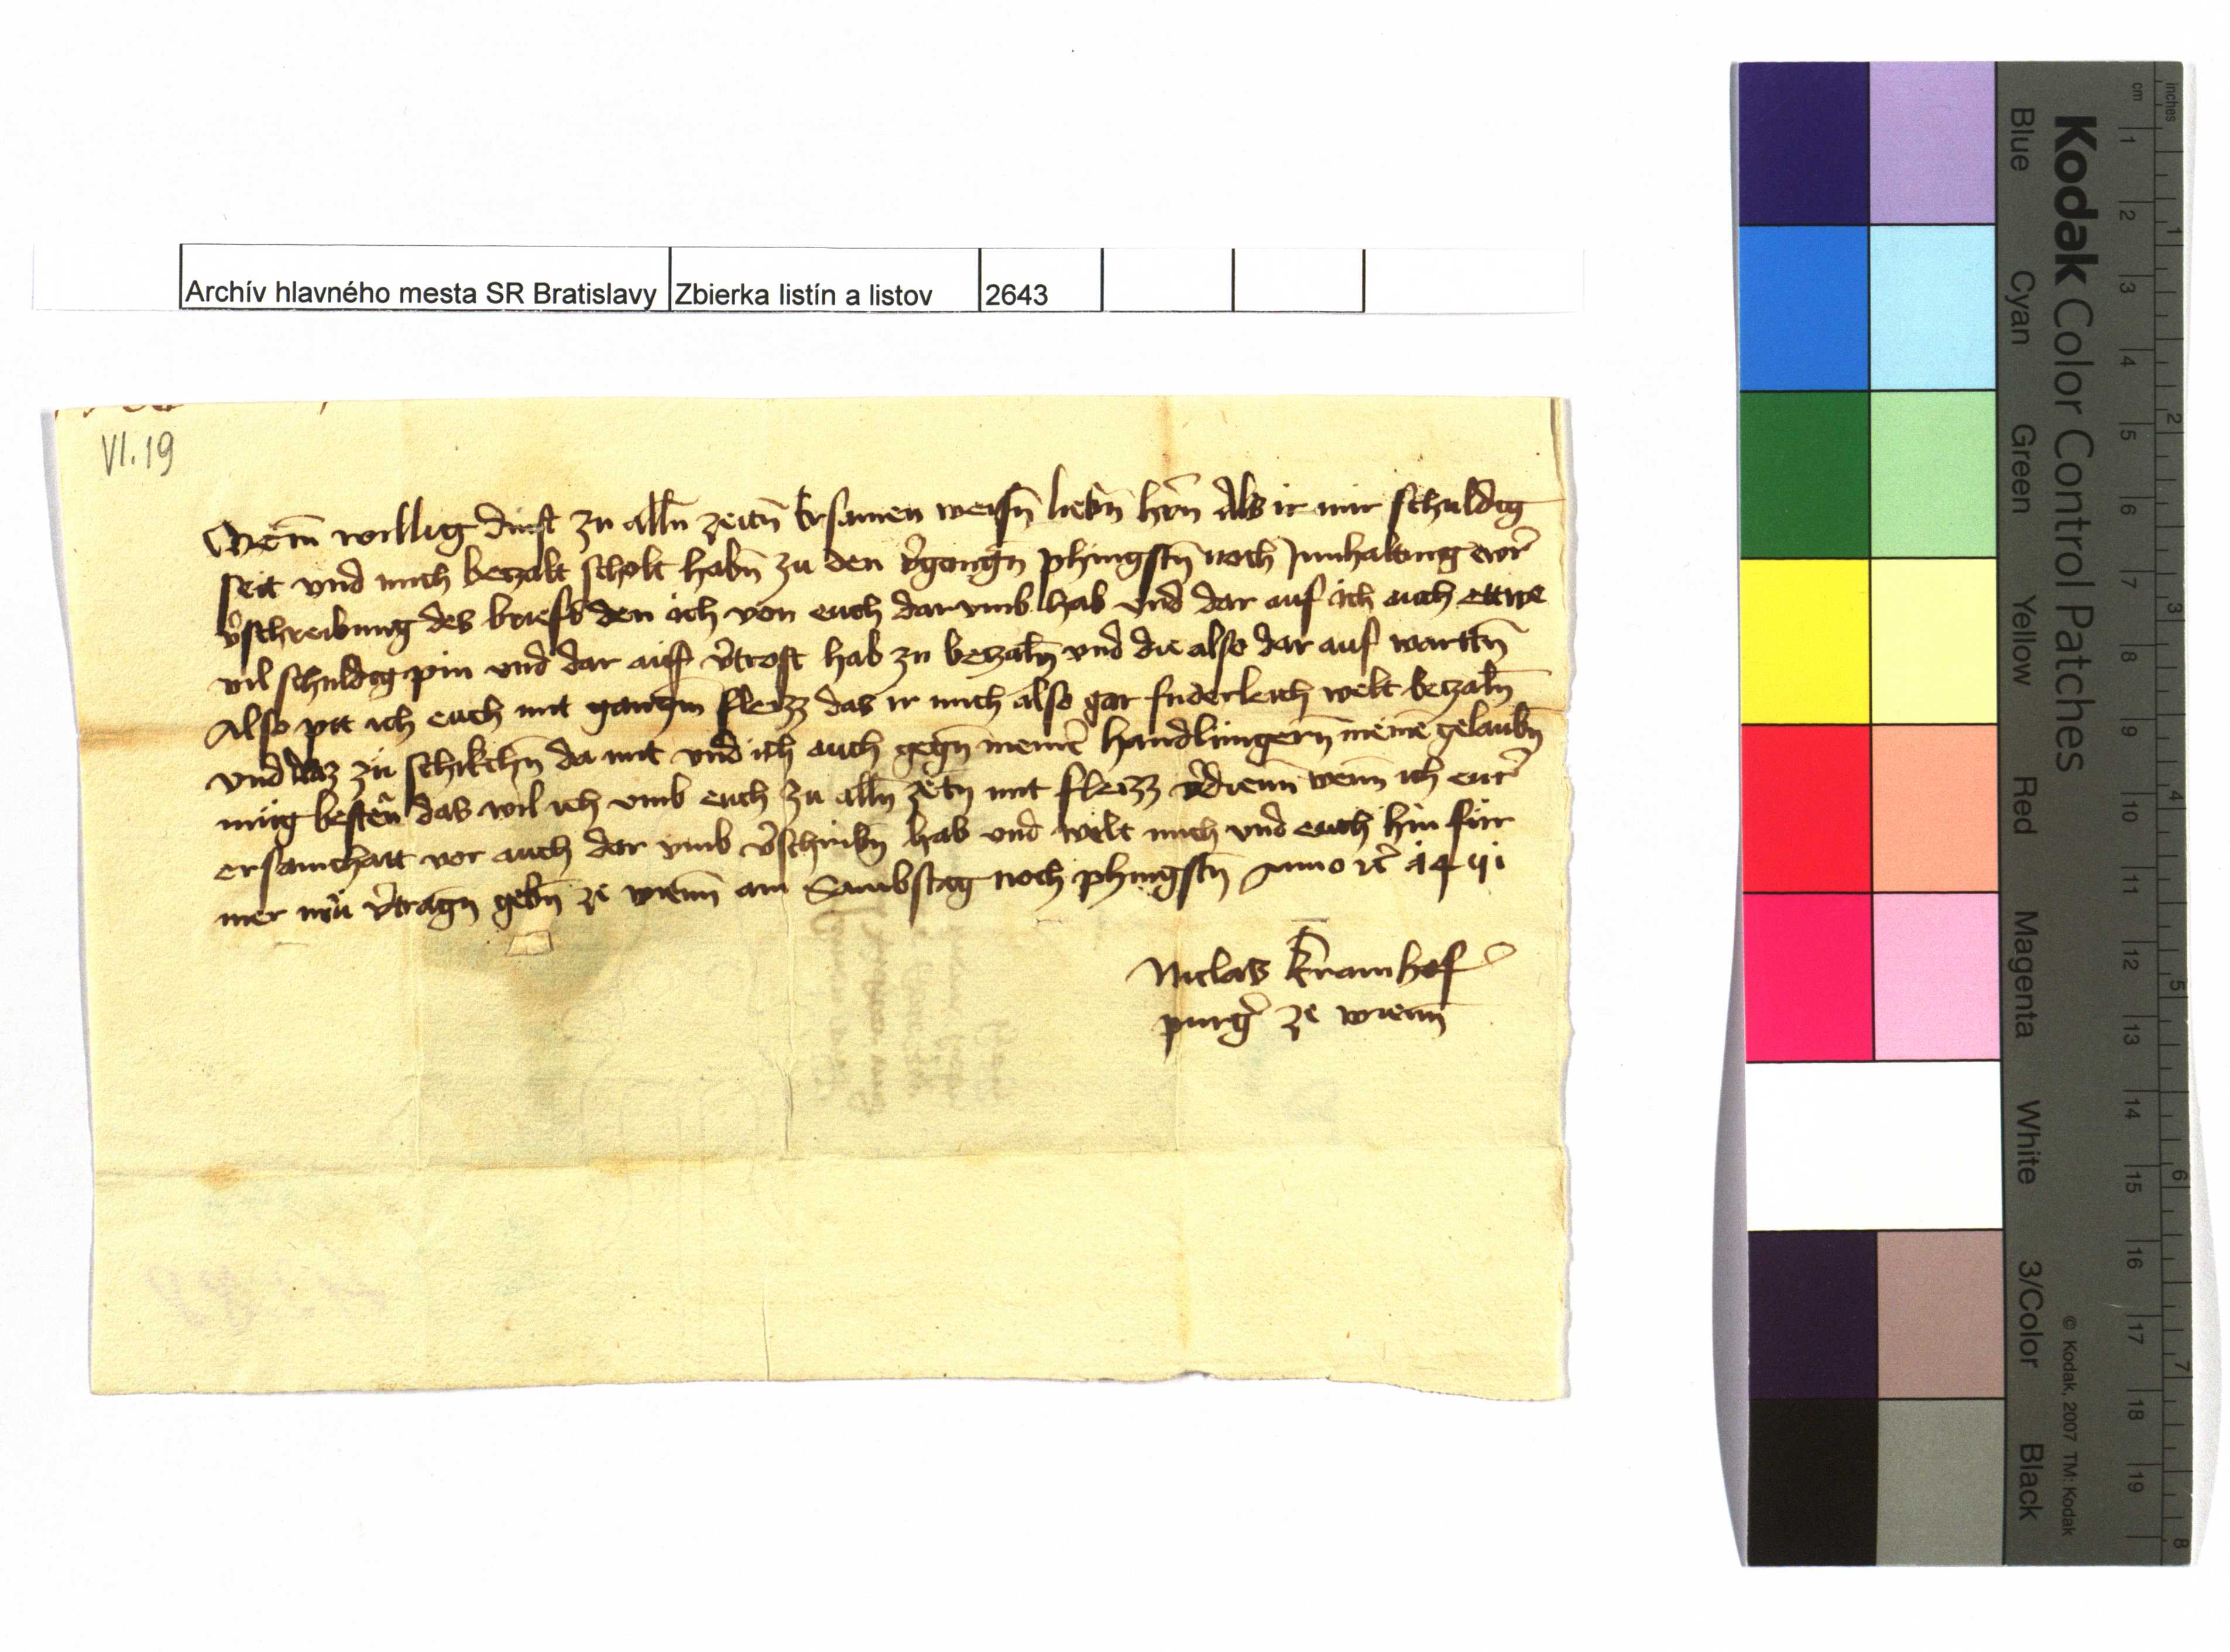 Archív hlavného mesta SR Bratislavy Zbierka listín a listov 2643
VI. 19
Mein willig dinst zu alln zeitn Ersamen weisn liebn hrn Als ir mir schuldig
seit vnd mich beczalt scholt habn zu den vgangn phingstn noch Innhaltung ewr
vschreibung des briefs den ich von euch darvmb hab vnd dar auf ich auch ettwe
vil schuldig pin vnd dar auf vtrost hab zu beczaln vnd die also dar auf warttn
Also pit ich euch mit ganczm fleizz das ir mich also gar fuderleich welt beczaln
vnd zu schikchn da mit vnd ich auch gegn meine handlungern meine gelaubn
müg besten das wil ich vmb euch zu alln zeitn mit fleizz vdienn wenn ich eur
ersamchait vor auch dar vmb vschribn hab vnd welt mich vnd euch hin für
mer mü vtragn gebn ze wienn am Sambstag noch phingstn Anno
Niclas Kramhof
purg ze wienn
Kodak Color Control Patches
Blue Cyan Green Yellow Red Magenta White 3/Color Black
© Kodak, 2007 TM: Kodak
cm 1 2 3 4 5 6 7 8 9 10 11 12 13 14 15 16 17 18 19
inches 1 2 3 4 5 6 7 8